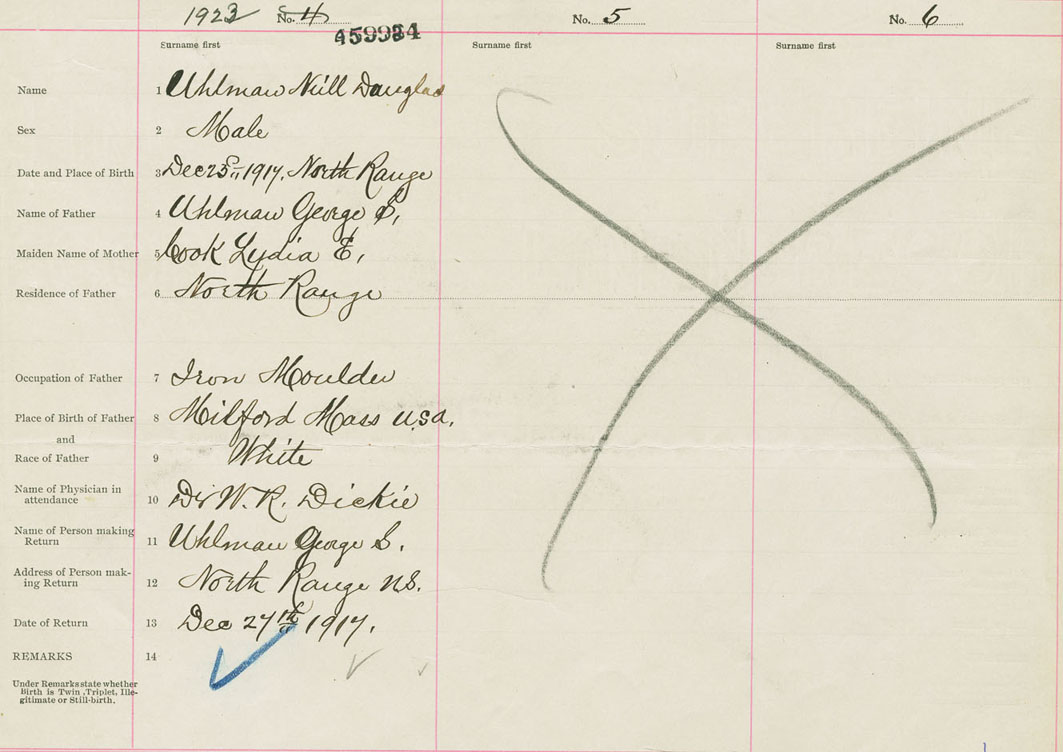 1923 No. 4 No. 5 No. 6
459984
Surname first Surname first Surname first
Name 1 Uhlman Niill Douglas
Sex 2 Male
Date and Place of Birth 3 Dec 25th 1917. North Range
Name of Father 4 Uhlman George S,
Maiden Name of Mother 5 Cook Lydia E,
Residence of Father 6 North Range
Occupation of Father 7 Iron Moulder
Place of Birth of Father 8 Milford Mass U.S.A.
and
Race of Father 9 White
Name of Physician in
attendance 10 Dr W. R. Dickie
Name of Person making
Return 11 Uhlman George S.
Address of Person mak-
ing Return 12 North Range N.S.
Date of Return 13 Dec 27th 1917.
REMARKS 14
Under Remarks state whether
Birth is Twin, Triplet, Ille-
gitimate or Still-birth.